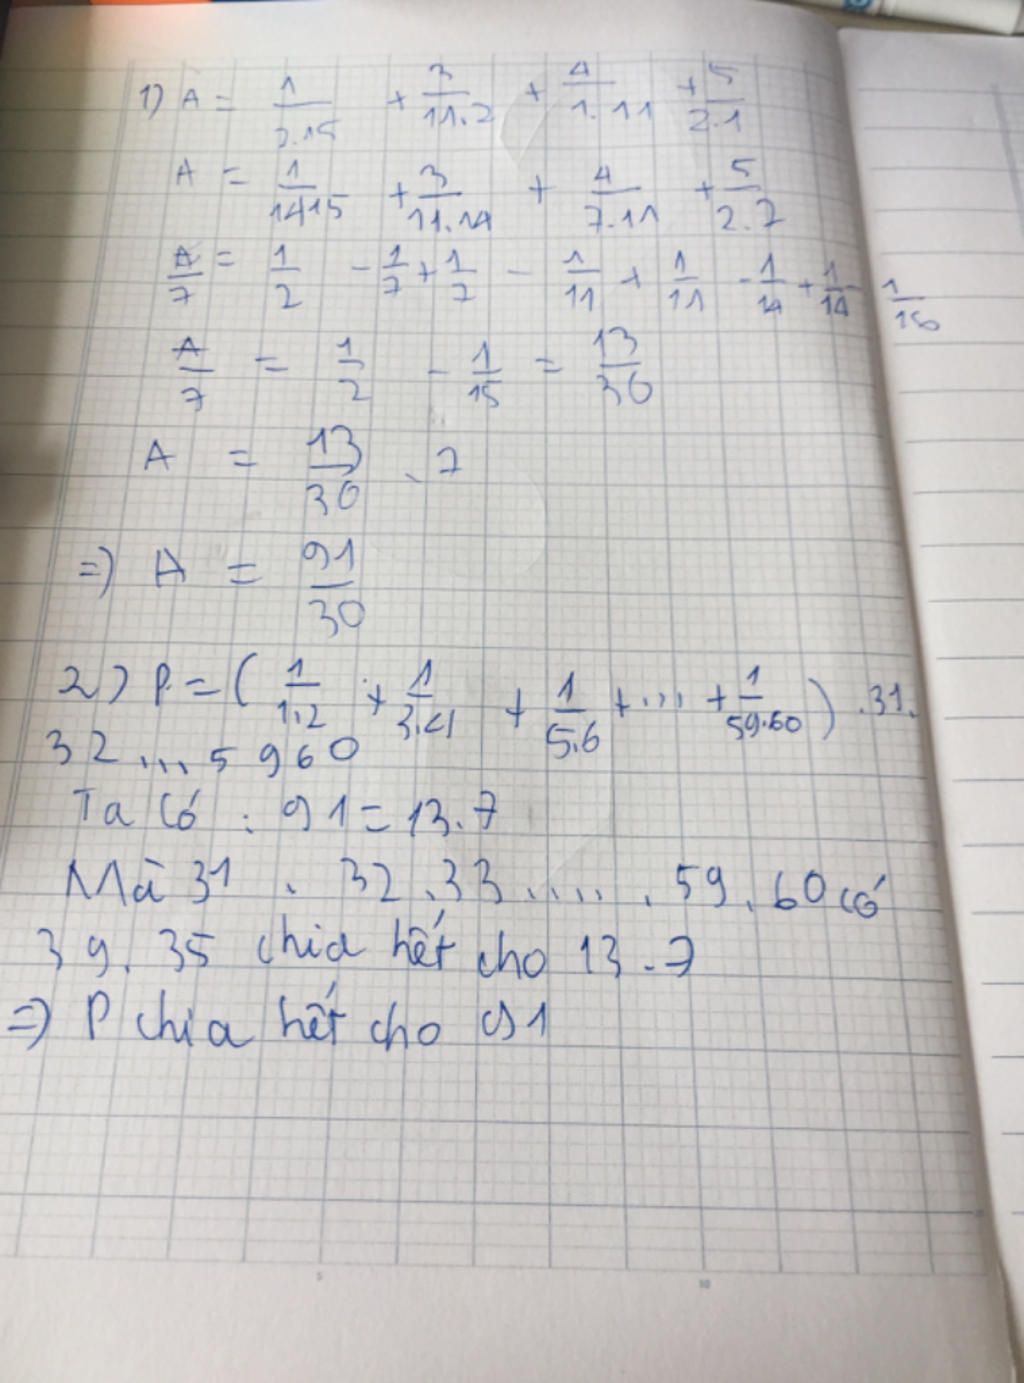 1) A = 1/2.15 + 3/11.2 + 4/1.11 + 5/2.1
A = 1/1415 + 3/11.14 + 4/7.11 + 5/2.7
A/7 = 1/2 - 1/7 + 1/7 - 1/11 + 1/11 - 1/14 + 1/14 - 1/15
A/7 = 1/2 - 1/15 = 13/30
A = 13/30 . 7
=) A = 91/30
2) P = ( 1/1.2 + 1/3.4 + 1/5.6 + ... + 1/59.60 ) .31.
32 ... 5 9 60
Ta có : 91 = 13.7
Mà 31 . 32 .33 ..... . 59 . 60 có
39. 35 chia hết cho 13 . 7
=) P chia hết cho 91